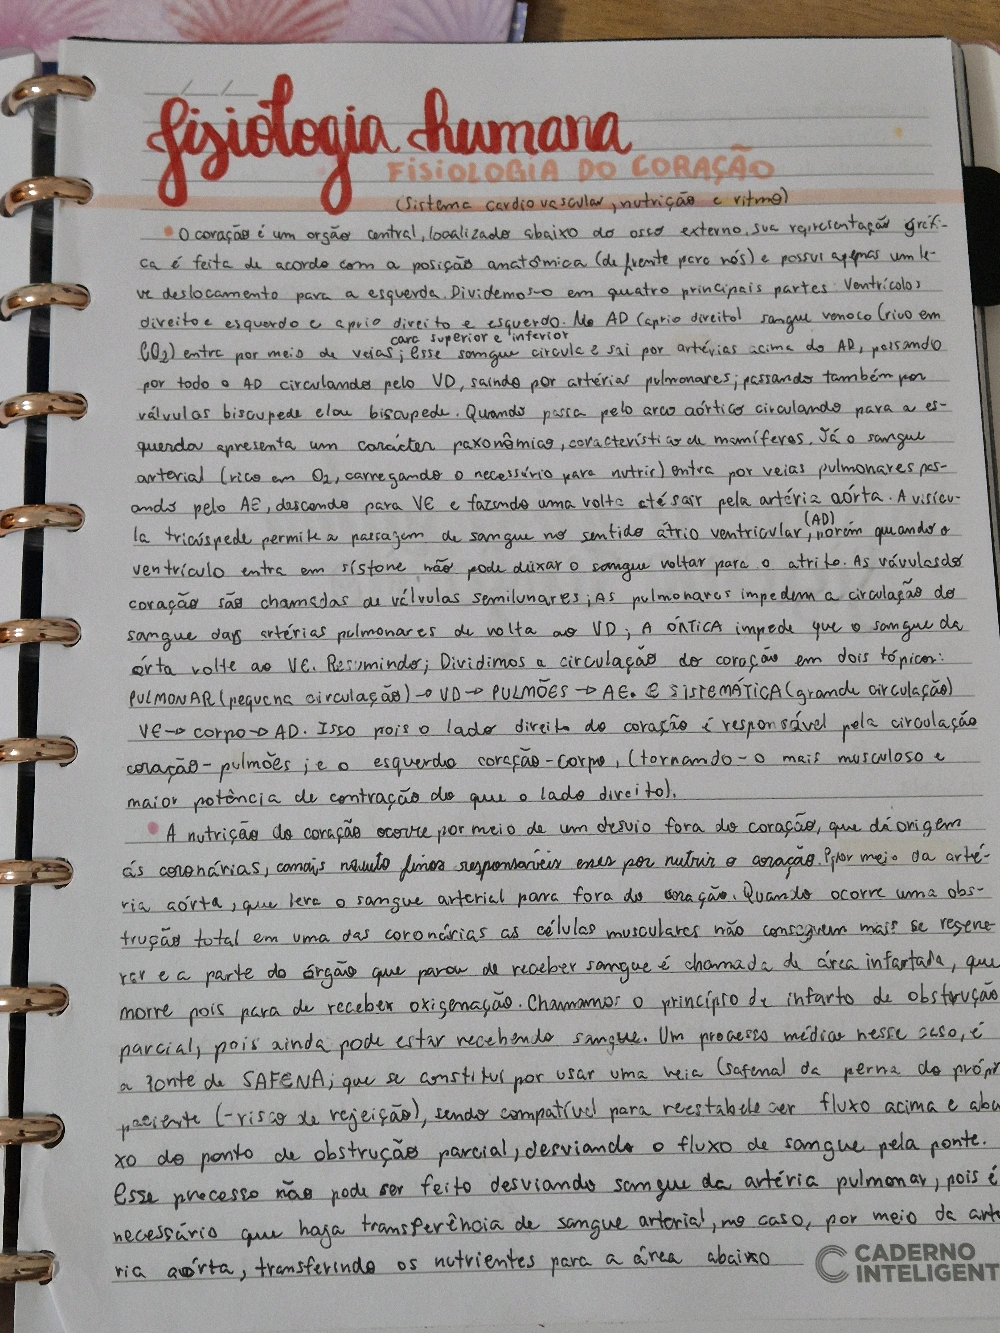 fisiologia humana
FISIOLOGIA DO CORAÇÃO
(sistema cardiovascular, nutrição e ritmo)
O coração é um orgão central, localizado abaixo do osso externo, sua representação gráfi-
ca é feita de acordo com a posição anatômica (de frente para nós) e possui apenas um le-
ve deslocamento para a esquerda. Dividemos-o em quatro principais partes: Ventrículos
direito e esquerdo e aprio direito e esquerdo. No AD (aprio direito) sangue venoco (rico em
cava superior e inferior
CO2) entra por meio de veias; esse sangue circula e sai por artérias acima do AD, passando
por todo o AD circulando pelo VD, saindo por artérias pulmonares; passando também por
válvulas biscupede e/ou biscupede. Quando passa pelo arco aórtico circulando para a es-
querda apresenta um carácter paxonômico, característico de mamíferos. Já o sangue
arterial (rico em O2, carregando o necessário para nutrir) entra por veias pulmonares pas-
ando pelo AE, descendo para VE e fazendo uma volta até sair pela artéria aórta. A visícu-
la tricúspede permite a passagem de sangue no sentido átrio ventricular, porém quando o
(AD)
ventrículo entra em sístone não pode deixar o sangue voltar para o atrito. As vávulas do
coração são chamadas de válvulas semilunares; As pulmonares impedem a circulação do
sangue das artérias pulmonares de volta ao VD; A ÓRTICA impede que o sangue da
órta volte ao VE. Resumindo; Dividimos a circulação do coração em dois tópicos:
PULMONAR (pequena circulação) → VD → PULMÕES → AE. E SISTEMÁTICA (grande circulação)
VE → corpo → AD. Isso pois o lado direito do coração é responsável pela circolação
coração-pulmões; e o esquerdo coração-corpo, (tornando-o mais musculoso e
maior potência de contração do que o lado direito).
A nutrição do coração ocorre por meio de um desvio fora do coração, que dá origem
ás coronárias, canais muito finos responsáveis esses por nutrir o coração. Por meio da arté-
ria aórta, que leva o sangue arterial para fora do coração. Quando ocorre uma obs-
trução total em uma das coronárias as células musculares não conseguem mais se regene-
rar e a parte do órgão que parou de receber sangue é chamada de área infartada, que
morre pois para de receber oxigenação. Chamamos o princípio de infarto de obstrução
parcial, pois ainda pode estar recebendo sangue. Um processo médico nesse caso, é
a Ponte de SAFENA; que se constitui por usar uma veia (safena) da perna do própr
paciente (-risco de rejeição), sendo compatível para reestabelecer fluxo acima e aba
xo do ponto de obstrução parcial, desviando o fluxo de sangue pela ponte.
Esse processo não pode ser feito desviando sangue da artéria pulmonar, pois é
necessário que haja transferência de sangue arterial, no caso, por meio da arté
ria aórta, transferindo os nutrientes para a área abaixo
CADERNO
INTELIGENT